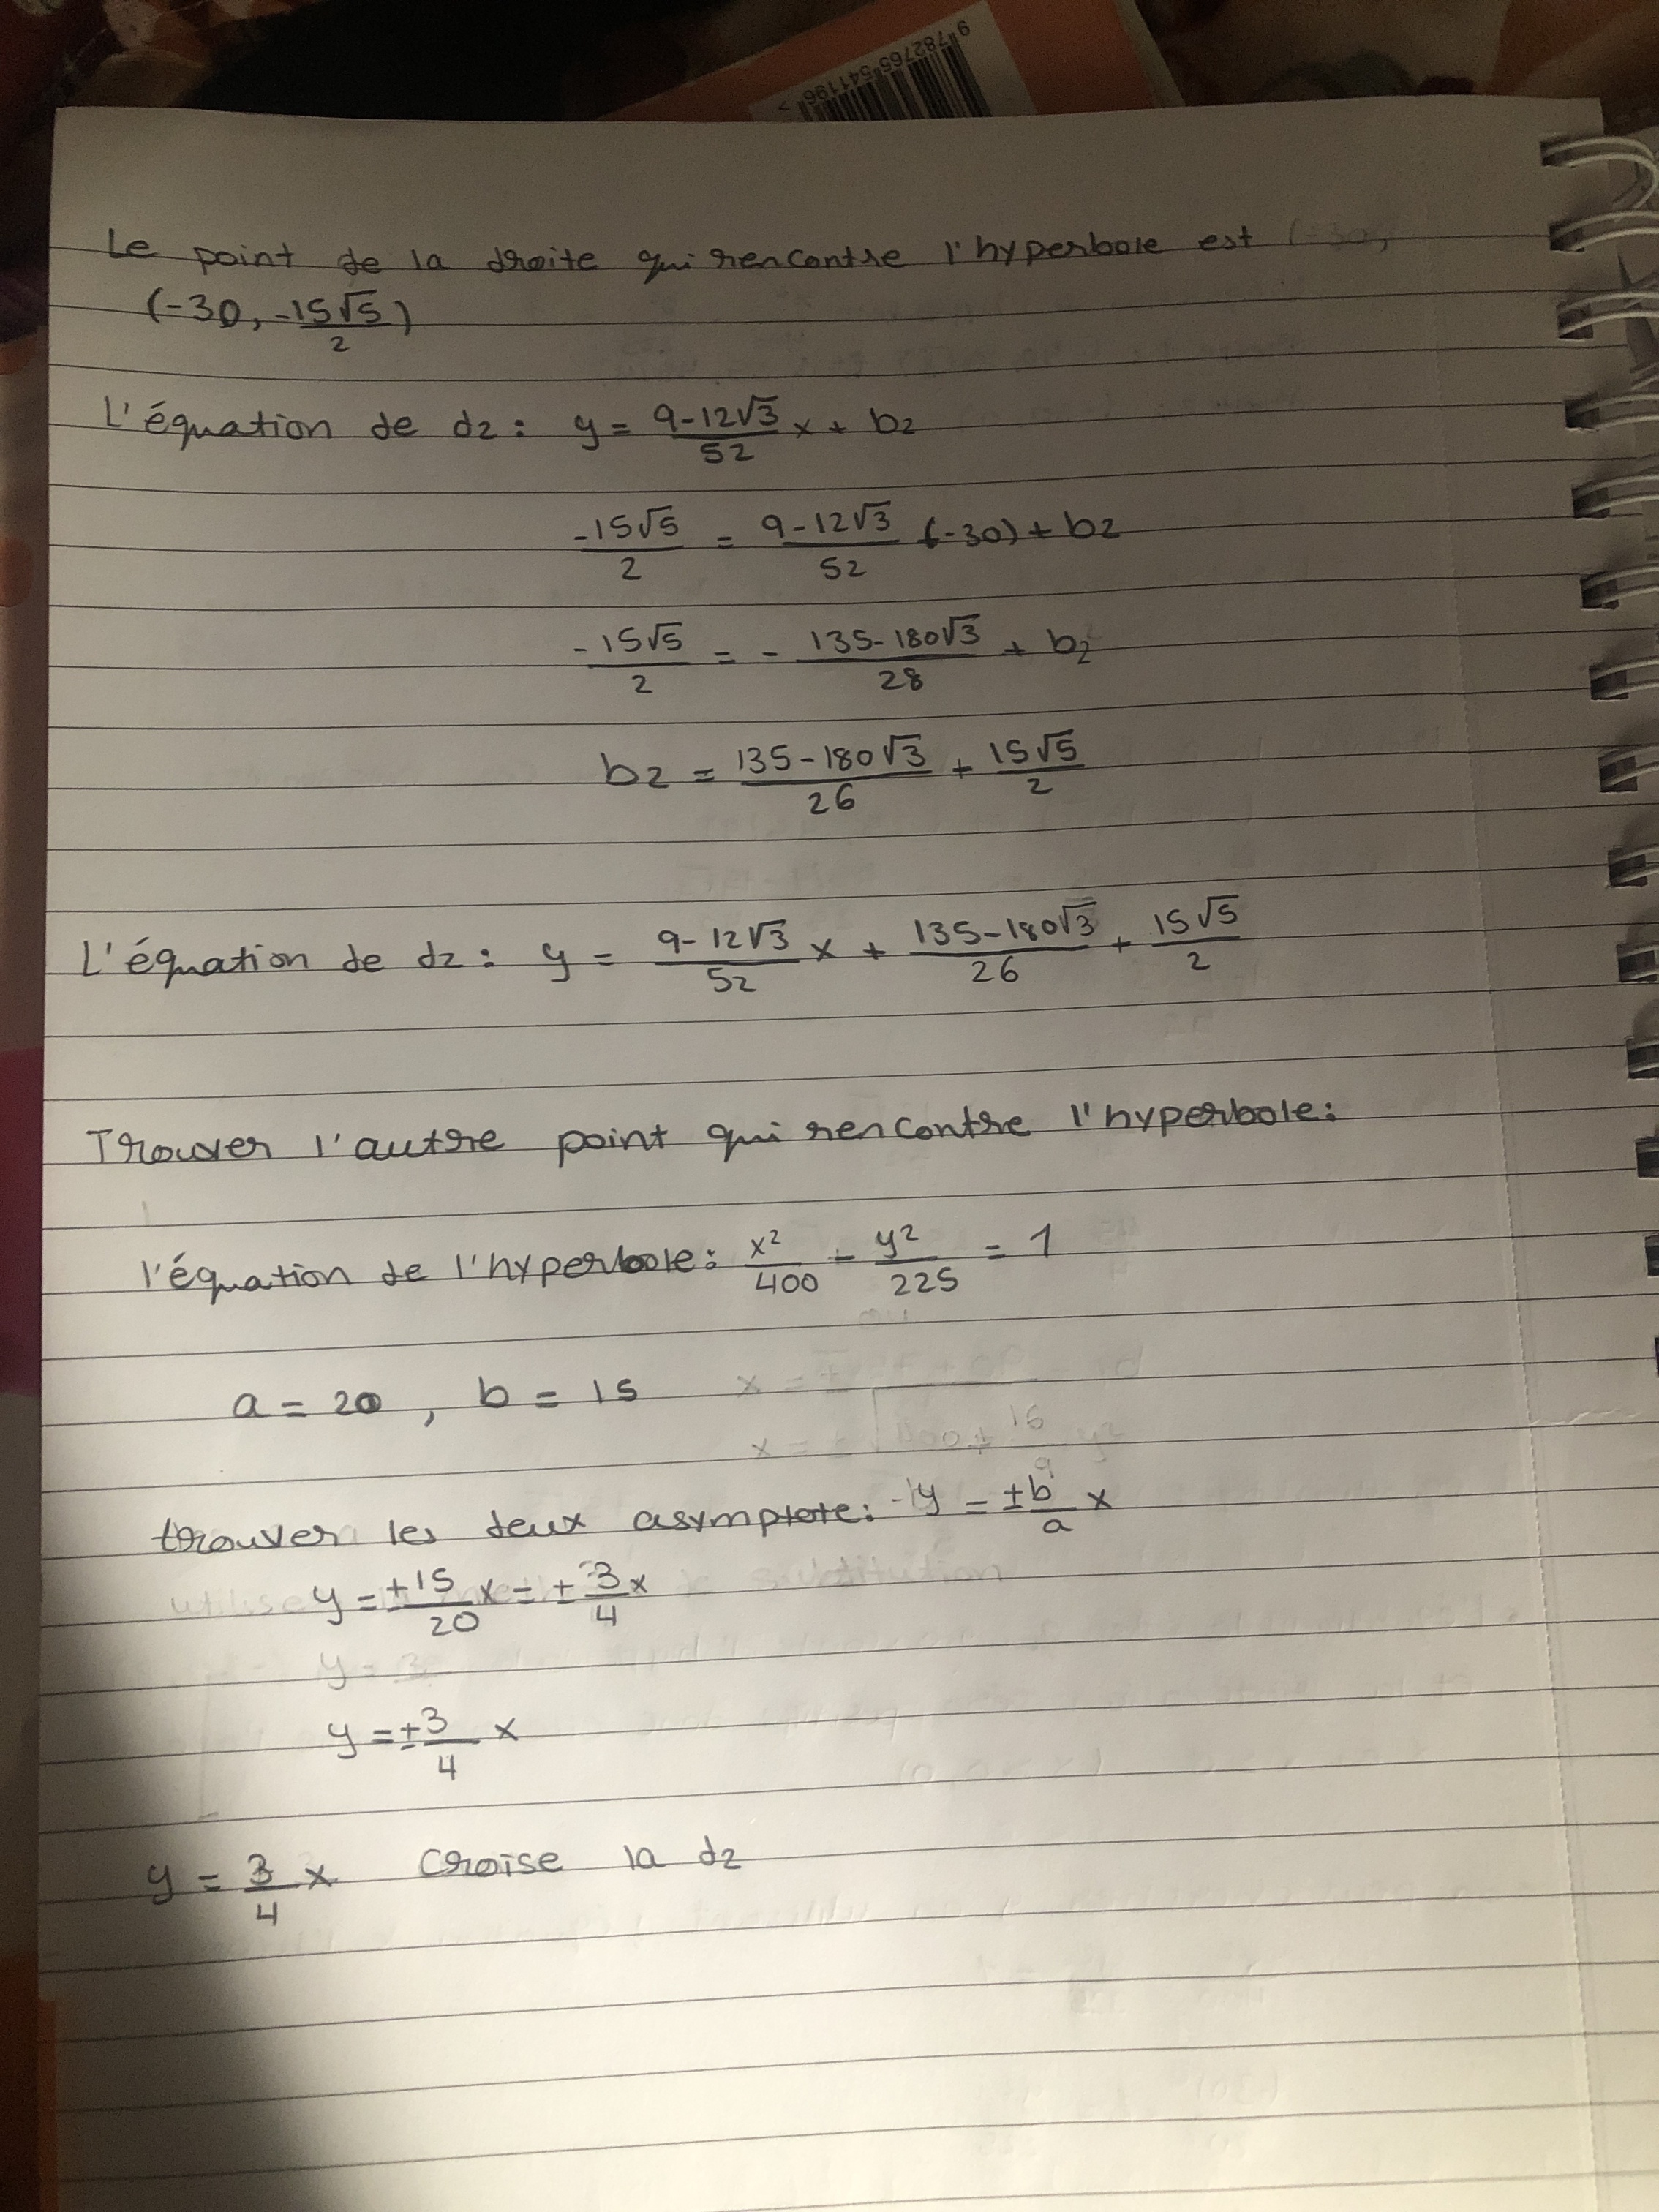 9 782765 541196 >
Le point de la droite qui rencontre l'hyperbole est (-30,
(-30, -15√5/2)
L'équation de d2: y = 9-12√3/52 x + b2
-15√5/2 = 9-12√3/52 (-30) + b2
-15√5/2 = - 135-180√3/28 + b2
b2 = 135-180√3/26 + 15√5/2
L'équation de d2: y = 9-12√3/52 x + 135-180√3/26 + 15√5/2
Trouver l'autre point qui rencontre l'hyperbole:
l'équation de l'hyperbole: x²/400 - y²/225 = 1
a = 20 , b = 15
trouver les deux asymptote: y = ±b/a x
y = ±15/20 x = ±3/4 x
y = 3
y = ±3/4 x
y = 3/4 x croise la d2